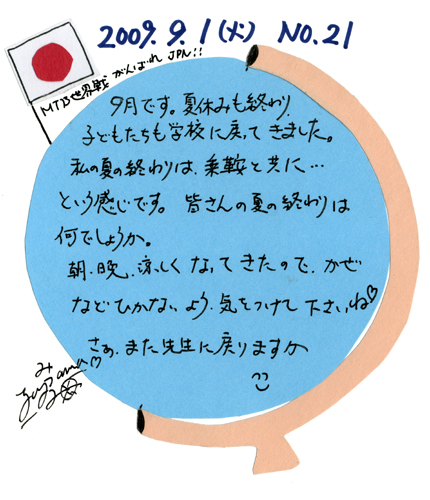 2009. 9. 1 (火) NO.21
MTB世界戦 がんばれ JPN!!
9月です。夏休みも終わり、
子どもたちも学校に戻ってきました。
私の夏の終わりは、乗鞍と共に…
という感じです。皆さんの夏の終わりは
何でしょうか。
朝、晩、涼しくなってきたので、かぜ
などひかないよう、気をつけて下さいね♡
さぁ、また先生に戻りますか
み